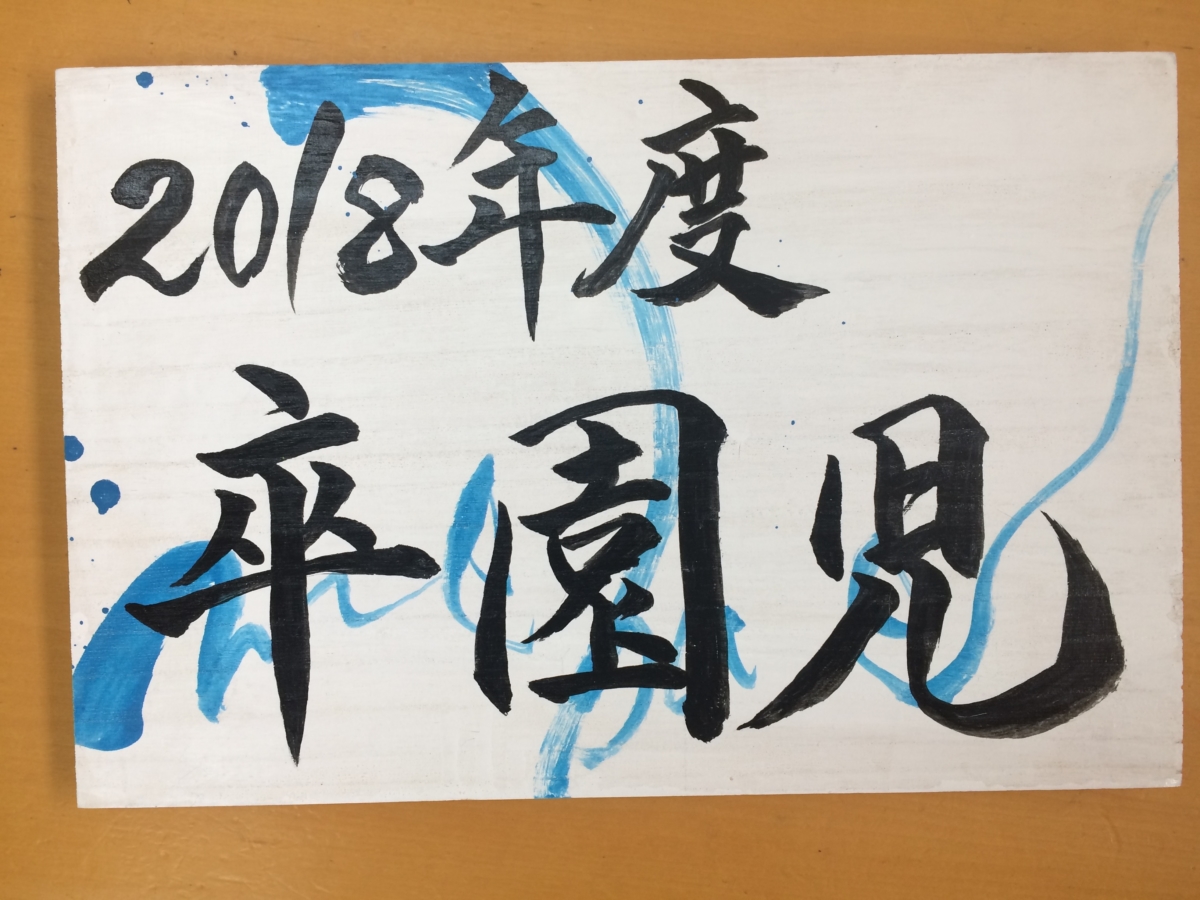 2018年度
卒園児